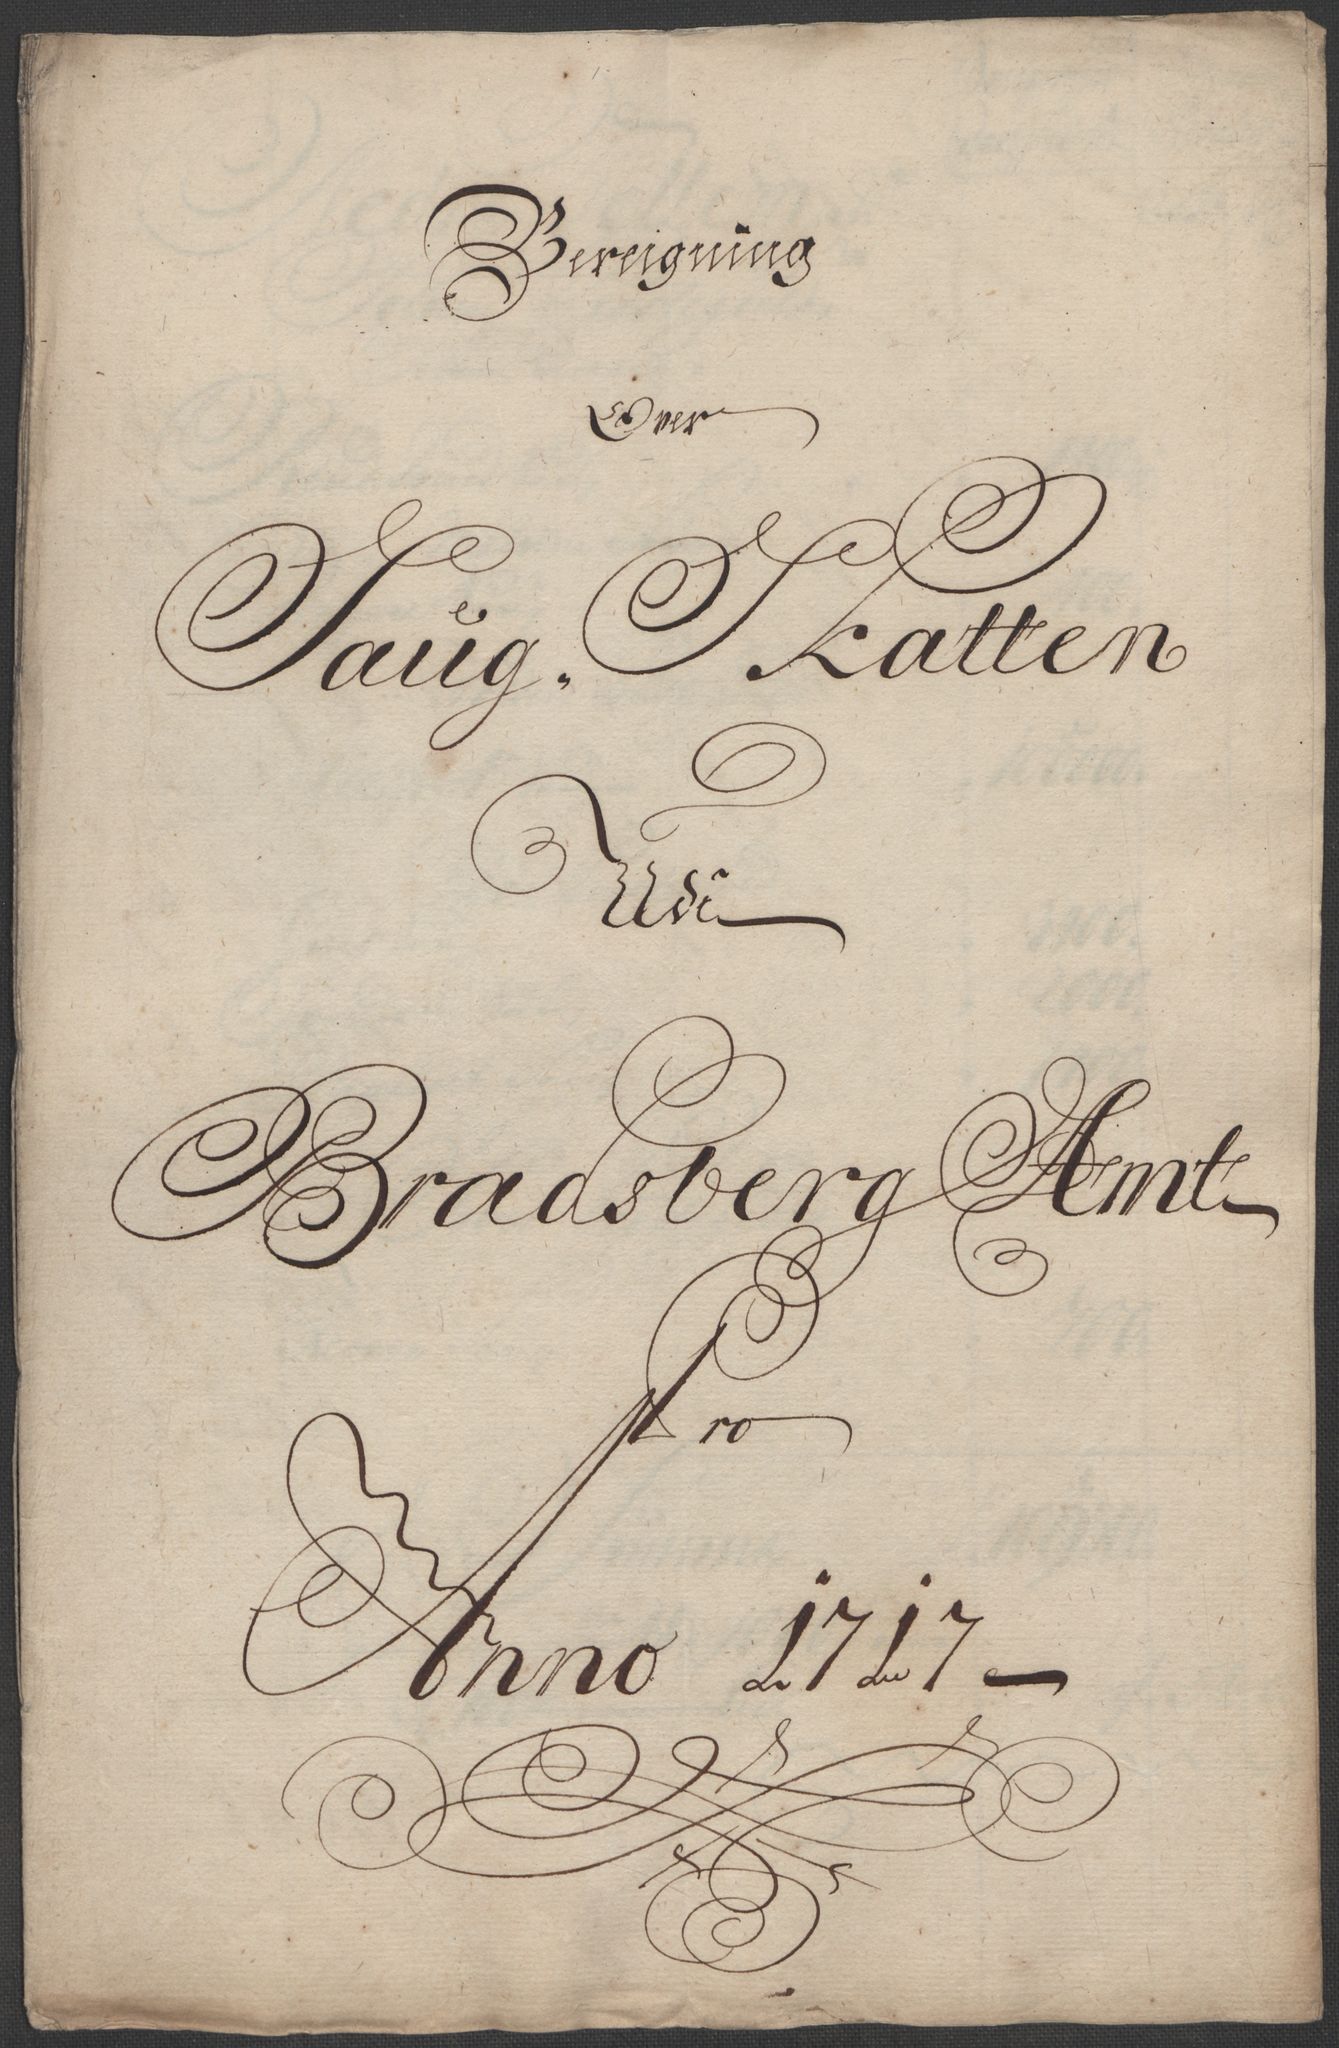 Bereigning
Over
Saug. Skatten
Udi
Bradsberg Amt
Pro
Anno 1717